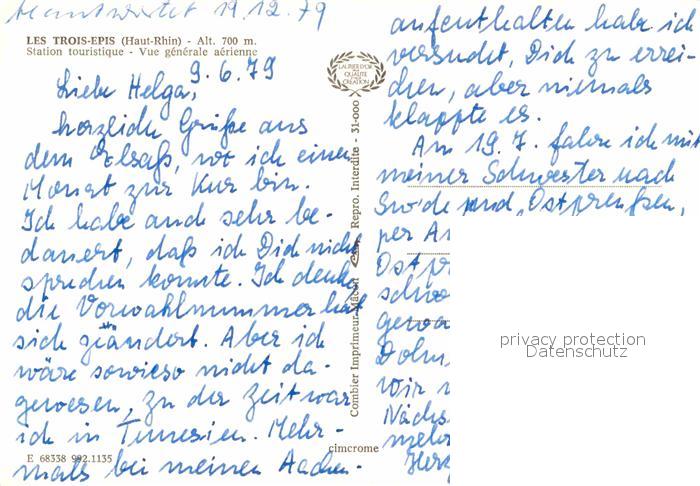 beantwortet 19.12.79
LES TROIS-EPIS (Haut-Rhin) - Alt. 700 m.
Station touristique - Vue générale aérienne
9.6.79
Liebe Helga,
herzliche Grüße aus
dem Elsaß, wo ich einen
Monat zur Kur bin.
Ich habe auch sehr be-
dauert, daß ich Dich nicht
sprechen konnte. Ich denke
die Vorwahlnummer hat
sich geändert. Aber ich
wäre sowieso nicht da-
gewesen, zu der Zeit war
ich in Tunesien. Mehr-
mals bei meinen Aachen-
E 68338 992.1135
cimcrome
LAURIER D'OR
DE LA
QUALITÉ
Combier Imprimeur Mâcon
Repro. Interdite - 31-000
aufenthalten habe ich
versucht, Dich zu errei-
chen, aber niemals
klappte es.
Am 19.7. fahre ich mit
meiner Schwester nach
und Ostpreußen,
per
Ostpr
schwe
gewo
Dolm
Wir
Nächs
mehr
Herz
privacy protection
Datenschutz